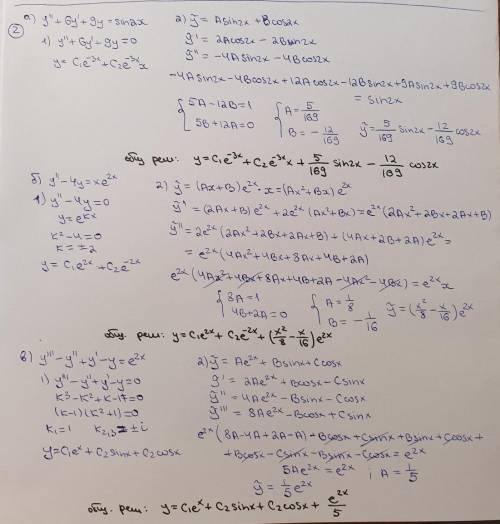 ②
а) y''+6y'+9y=sin2x
1) y''+6y'+9y=0
y=C₁e^{-3x}+C₂e^{-3x}x
2) ỹ=Asin2x+Bcos2x
ỹ'=2Acos2x-2Bsin2x
ỹ''=-4Asin2x-4Bcos2x
-4Asin2x-4Bcos2x+12Acos2x-12Bsin2x+9Asin2x+9Bcos2x
=sin2x
{5A-12B=1 {A=5/169
5B+12A=0 B=-12/169 ỹ=5/169 sin2x-12/169 cos2x
общ реш: y=C₁e^{-3x}+C₂e^{-3x}x+5/169 sin2x-12/169 cos2x
б) y''-4y=xe^{2x}
1) y''-4y=0
y=e^{kx}
k²-4=0
k=±2
y=C₁e^{2x}+C₂e^{-2x}
2) ỹ=(Ax+B)e^{2x}·x=(Ax²+Bx)e^{2x}
ỹ'=(2Ax+B)e^{2x}+2e^{2x}(Ax²+Bx)=e^{2x}(2Ax²+2Bx+2Ax+B)
ỹ''=2e^{2x}(2Ax²+2Bx+2Ax+B)+(4Ax+2B+2A)e^{2x}=
=e^{2x}(4Ax²+4Bx+8Ax+4B+2A)
e^{2x}(4Ax²+4Bx+8Ax+4B+2A-4Ax²-4Bx)=e^{2x}x
{8A=1 {A=1/8
4B+2A=0 B=-1/16 ỹ=(x²/8-x/16)e^{2x}
общ. реш: y=C₁e^{2x}+C₂e^{-2x}+(x²/8-x/16)e^{2x}
в) y'''-y''+y'-y=e^{2x}
1) y'''-y''+y'-y=0
k³-k²+k-1=0
(k-1)(k²+1)=0
k₁=1 k₂,₃=±i
y=C₁eˣ+C₂sinx+C₂cosx
2) ỹ=Ae^{2x}+Bsinx+Ccosx
ỹ'=2Ae^{2x}+Bcosx-Csinx
ỹ''=4Ae^{2x}-Bsinx-Ccosx
ỹ'''=8Ae^{2x}-Bcosx+Csinx
e^{2x}(8A-4A+2A-A)-Bcosx+Csinx+Bsinx+Ccosx+
+Bcosx-Csinx-Bsinx-Ccosx=e^{2x}
5Ae^{2x}=e^{2x} ; A=1/5
ỹ=1/5 e^{2x}
общ. реш: y=C₁eˣ+C₂sinx+C₂cosx+e^{2x}/5